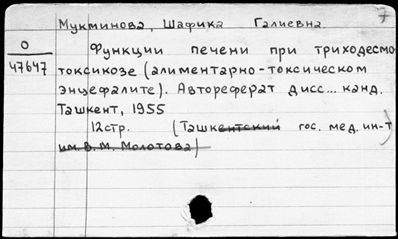 Мукминова, Шафика Галиевна.
О
47647
Функции печени при триходесмо
токсикозе (алиментарно-токсическом
энцефалите). Автореферат дисс... канд.
Ташкент, 1955
12стр. (Ташкентский гос. мед. ин-т
им. В. М. Молотова)